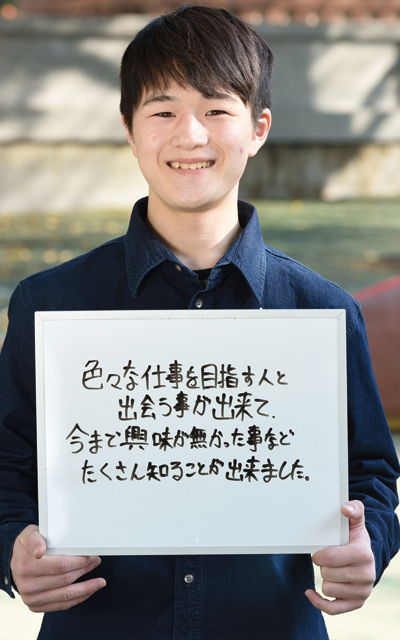 色々な仕事を目指す人と
出会う事が出来て、
今まで興味が無かった事など
たくさん知ることが出来ました。